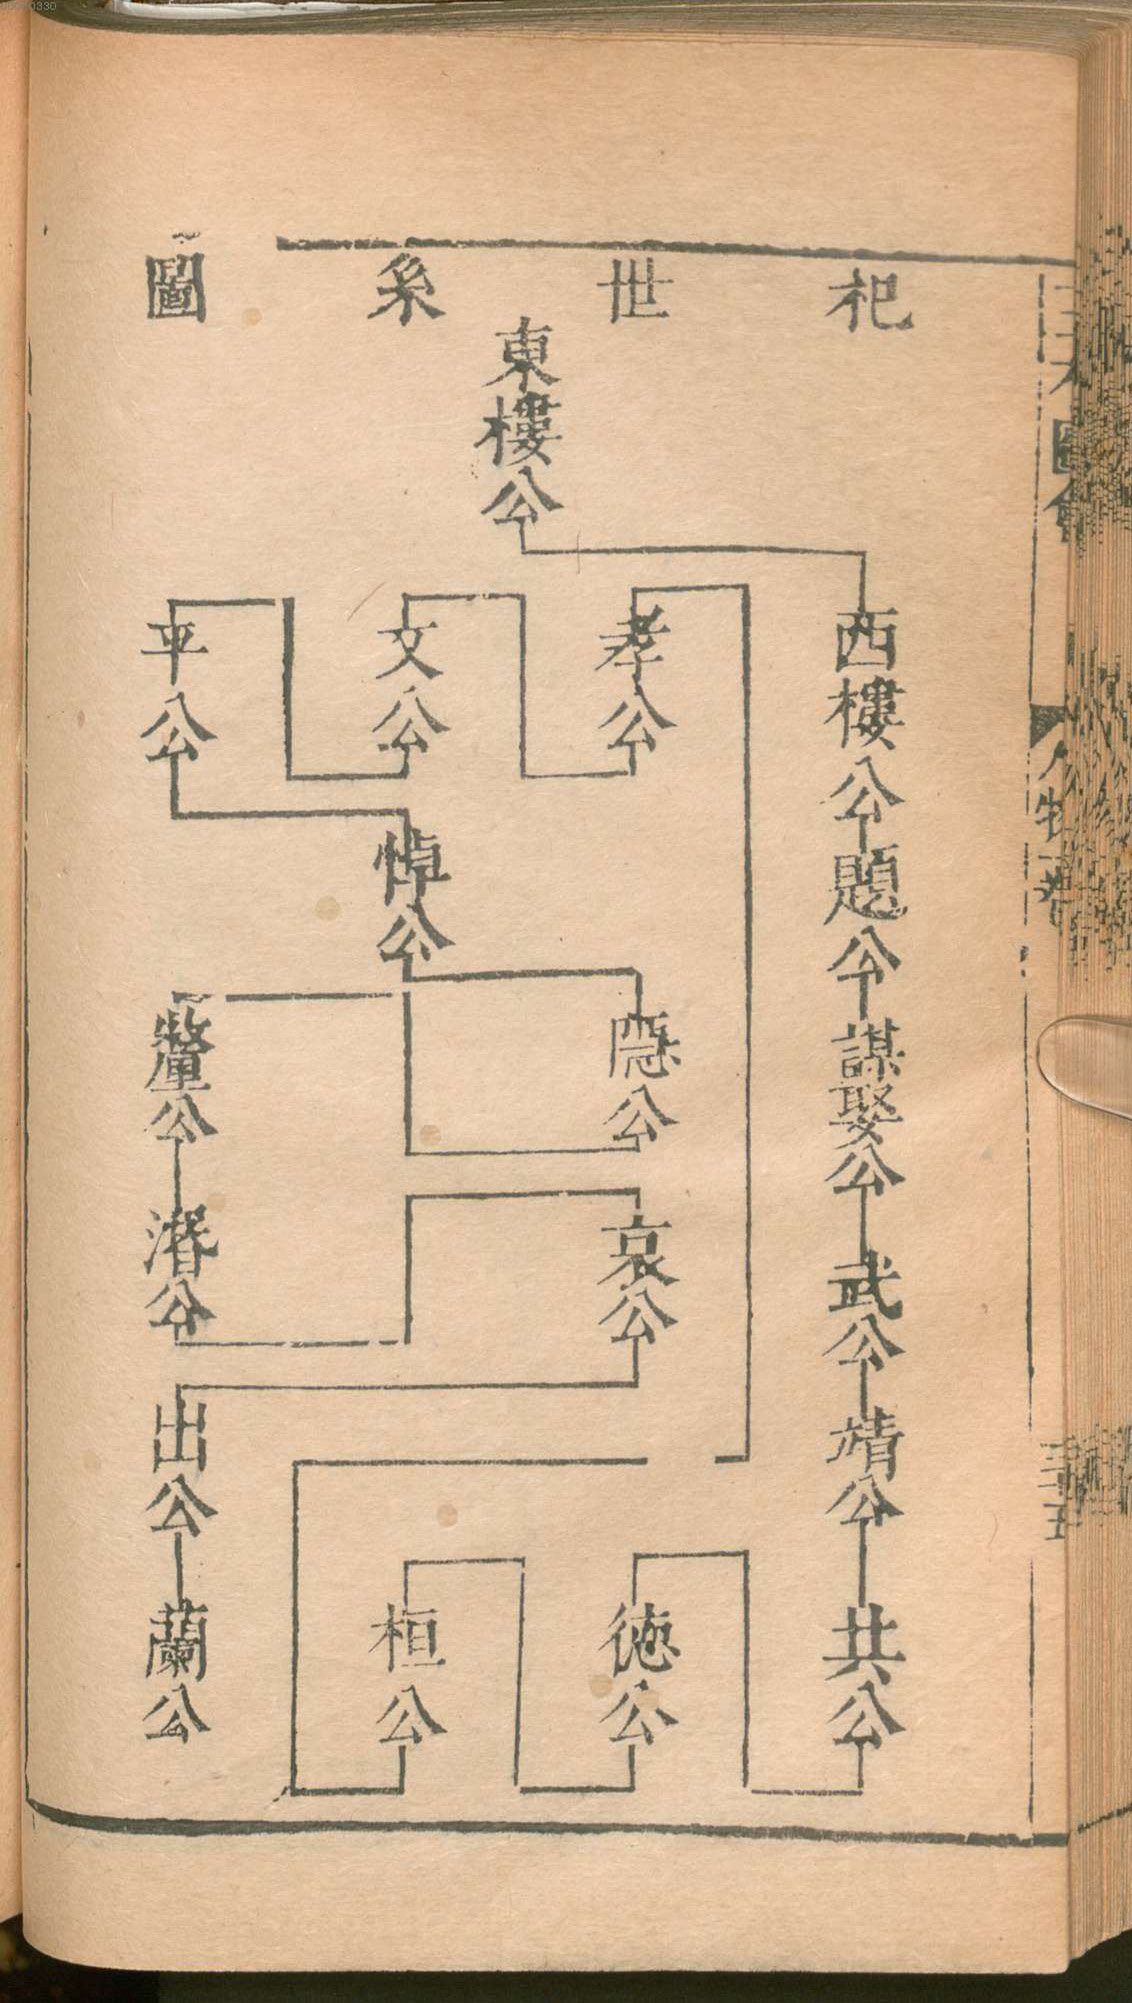 杞世系圖
東樓公
西樓公
題公
謀娶公
武公
靖公
共公
德公
桓公
孝公
文公
平公
悼公
隱公
釐公
湣公
哀公
出公
蘭公